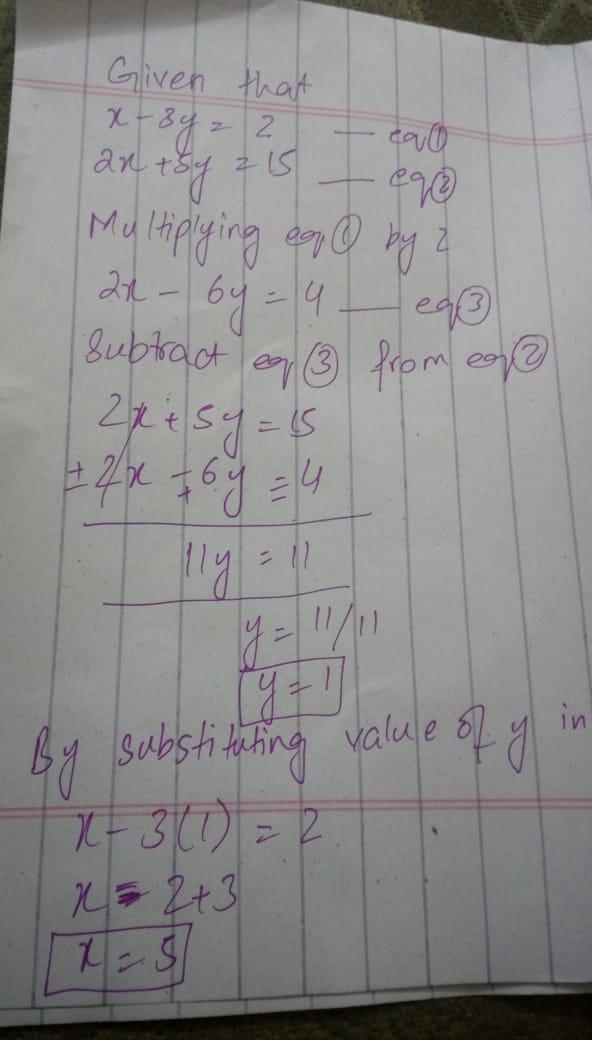 Given that
x - 3y = 2 — eq①
2x + 5y = 15 — eq②
Multiplying eq① by 2
2x - 6y = 4 — eq③
Subtract eq③ from eq②
2x + 5y = 15
± 2x ∓ 6y = 4
11y = 11
y = 11/11
y = 1
By substituting value of y in
x - 3(1) = 2
x = 2+3
x = 5